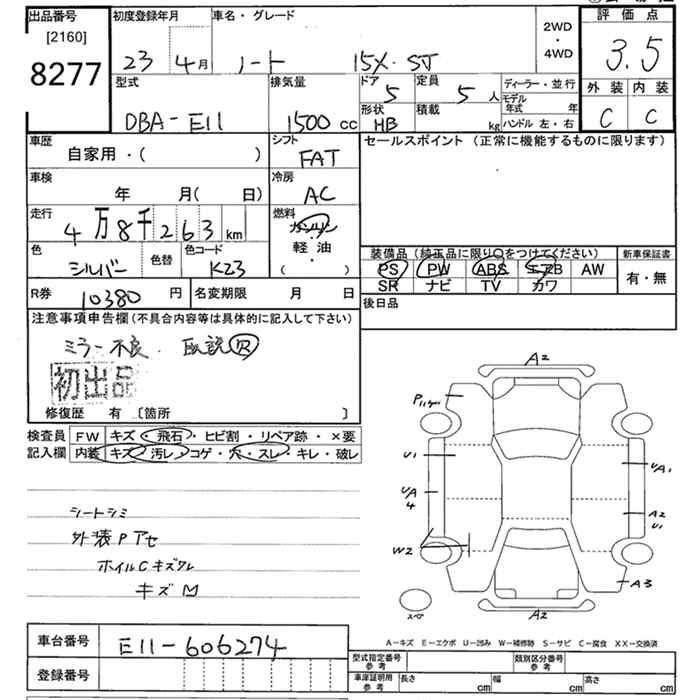 出品番号 初度登録年月 車名・グレード 2WD・4WD 評価点
[2160]
8277 23 4月 ノート 15X・SV 3.5
型式 排気量 ドア 定員 ディーラー・並行 外装 内装
5 5人 モデル年式 年
DBA-E11 1500cc 形状 HB 積載 kg ハンドル 左・右 C C
車歴 シフト セールスポイント (正常に機能するものに限ります)
自家用・( ) FAT
車検 冷房
年 月( 日) AC
走行 燃料
4万8千263km ガソリン
軽油
( )
色 色替 色コード 装備品 (純正品に限り○をつけてください) 新車保証書
シルバー K23 PS PW ABS エアB AW 有・無
SR ナビ TV カワ
R券 10380円 名変期限 月 日 後日品
注意事項申告欄(不具合内容等は具体的に記入して下さい)
ミラー不良. 取説欠
初出品
修復歴 有 〔箇所 〕
検査員 FW キズ・飛石・ヒビ割・リペア跡・×要
記入欄 内装 キズ・汚レ・コゲ・穴・スレ・キレ・破レ
シートシミ
外装Pアセ
ホイルCキズクレ
キズM
A2
U1
UA1
UA4
A2
U1
W2
A3
スペア
A2
A-キズ E-エクボ U-凹み W-補修跡 S-サビ C-腐食 XX-交換済
車台番号 E11-606274
型式指定番号 参考 類別区分番号 参考
登録番号 車庫証明用 参考 長さ cm 幅 cm 高さ cm